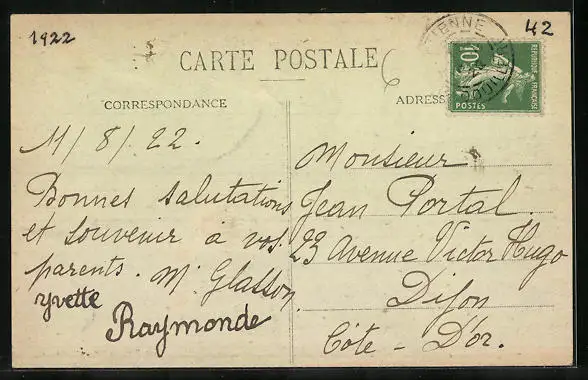 1922
42
CARTE POSTALE
CORRESPONDANCE
ADRESS
10c
REPUBLIQUE FRANÇAISE
POSTES
11/8/22.
Bonnes salutations
et souvenir à vos
parents. M. Glasson.
yvette
Raymonde
Monsieur
Jean Portal.
23 Avenue Victor Hugo
Dijon
Côte-D'or.